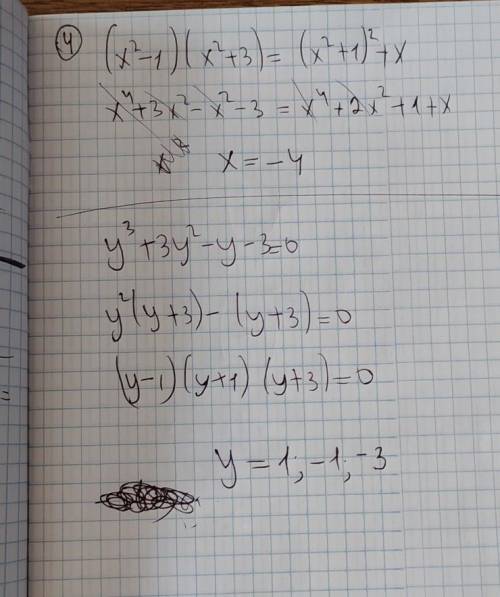 4 (x²-1)(x²+3) = (x²+1)²+x
x⁴+3x²-x²-3 = x⁴+2x²+1+x
x = -4
y³+3y²-y-3=0
y²(y+3)-(y+3)=0
(y-1)(y+1)(y+3)=0
y = 1; -1; -3